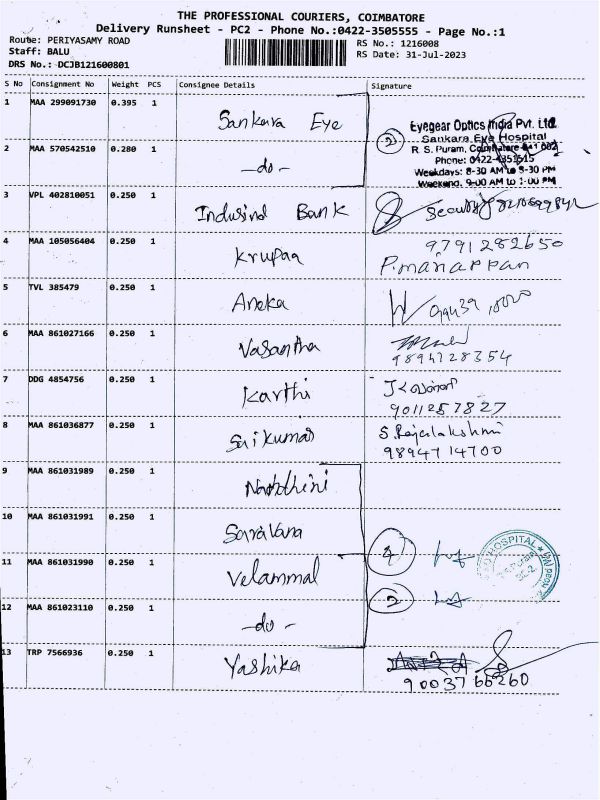 THE PROFESSIONAL COURIERS, COIMBATORE
Delivery Runsheet - PC2 - Phone No.:0422-3505555 - Page No.:1
Route: PERIYASAMY ROAD
RS No.: 1216008
Staff: BALU
RS Date: 31-Jul-2023
DRS No.: DCJB121600801
S No Consignment No Weight PCS Consignee Details Signature
1 MAA 299091730 0.395 1 Sankara Eye
Eyegear Optics India Pvt. Ltd.
Sankara Eye Hospital
2 MAA 570542510 0.280 1 -do- 2
R. S. Puram, Coimbatore 641 002
Phone: 0422-4351515
Weekdays: 8-30 AM to 8-30 PM
Weekend. 9-00 AM to 1-00 PM
3 VPL 402810051 0.250 1 Indusind Bank Security
4 MAA 105056404 0.250 1 Krupaa 9791282650
P.mariappan
5 TVL 385479 0.250 1 Aneka
6 MAA 861027166 0.250 1 Vasantha
9894728354
7 DDG 4854756 0.250 1 Karthi
9011257827
8 MAA 861036877 0.250 1 Saikumar S.Rajalakshmi
9894714700
9 MAA 861031989 0.250 1
10 MAA 861031991 0.250 1 Saravana
4
HOSPITAL
11 MAA 861031990 0.250 1 Velammal
2
12 MAA 861023110 0.250 1 -do-
13 TRP 7566936 0.250 1 Yashika
9003766260